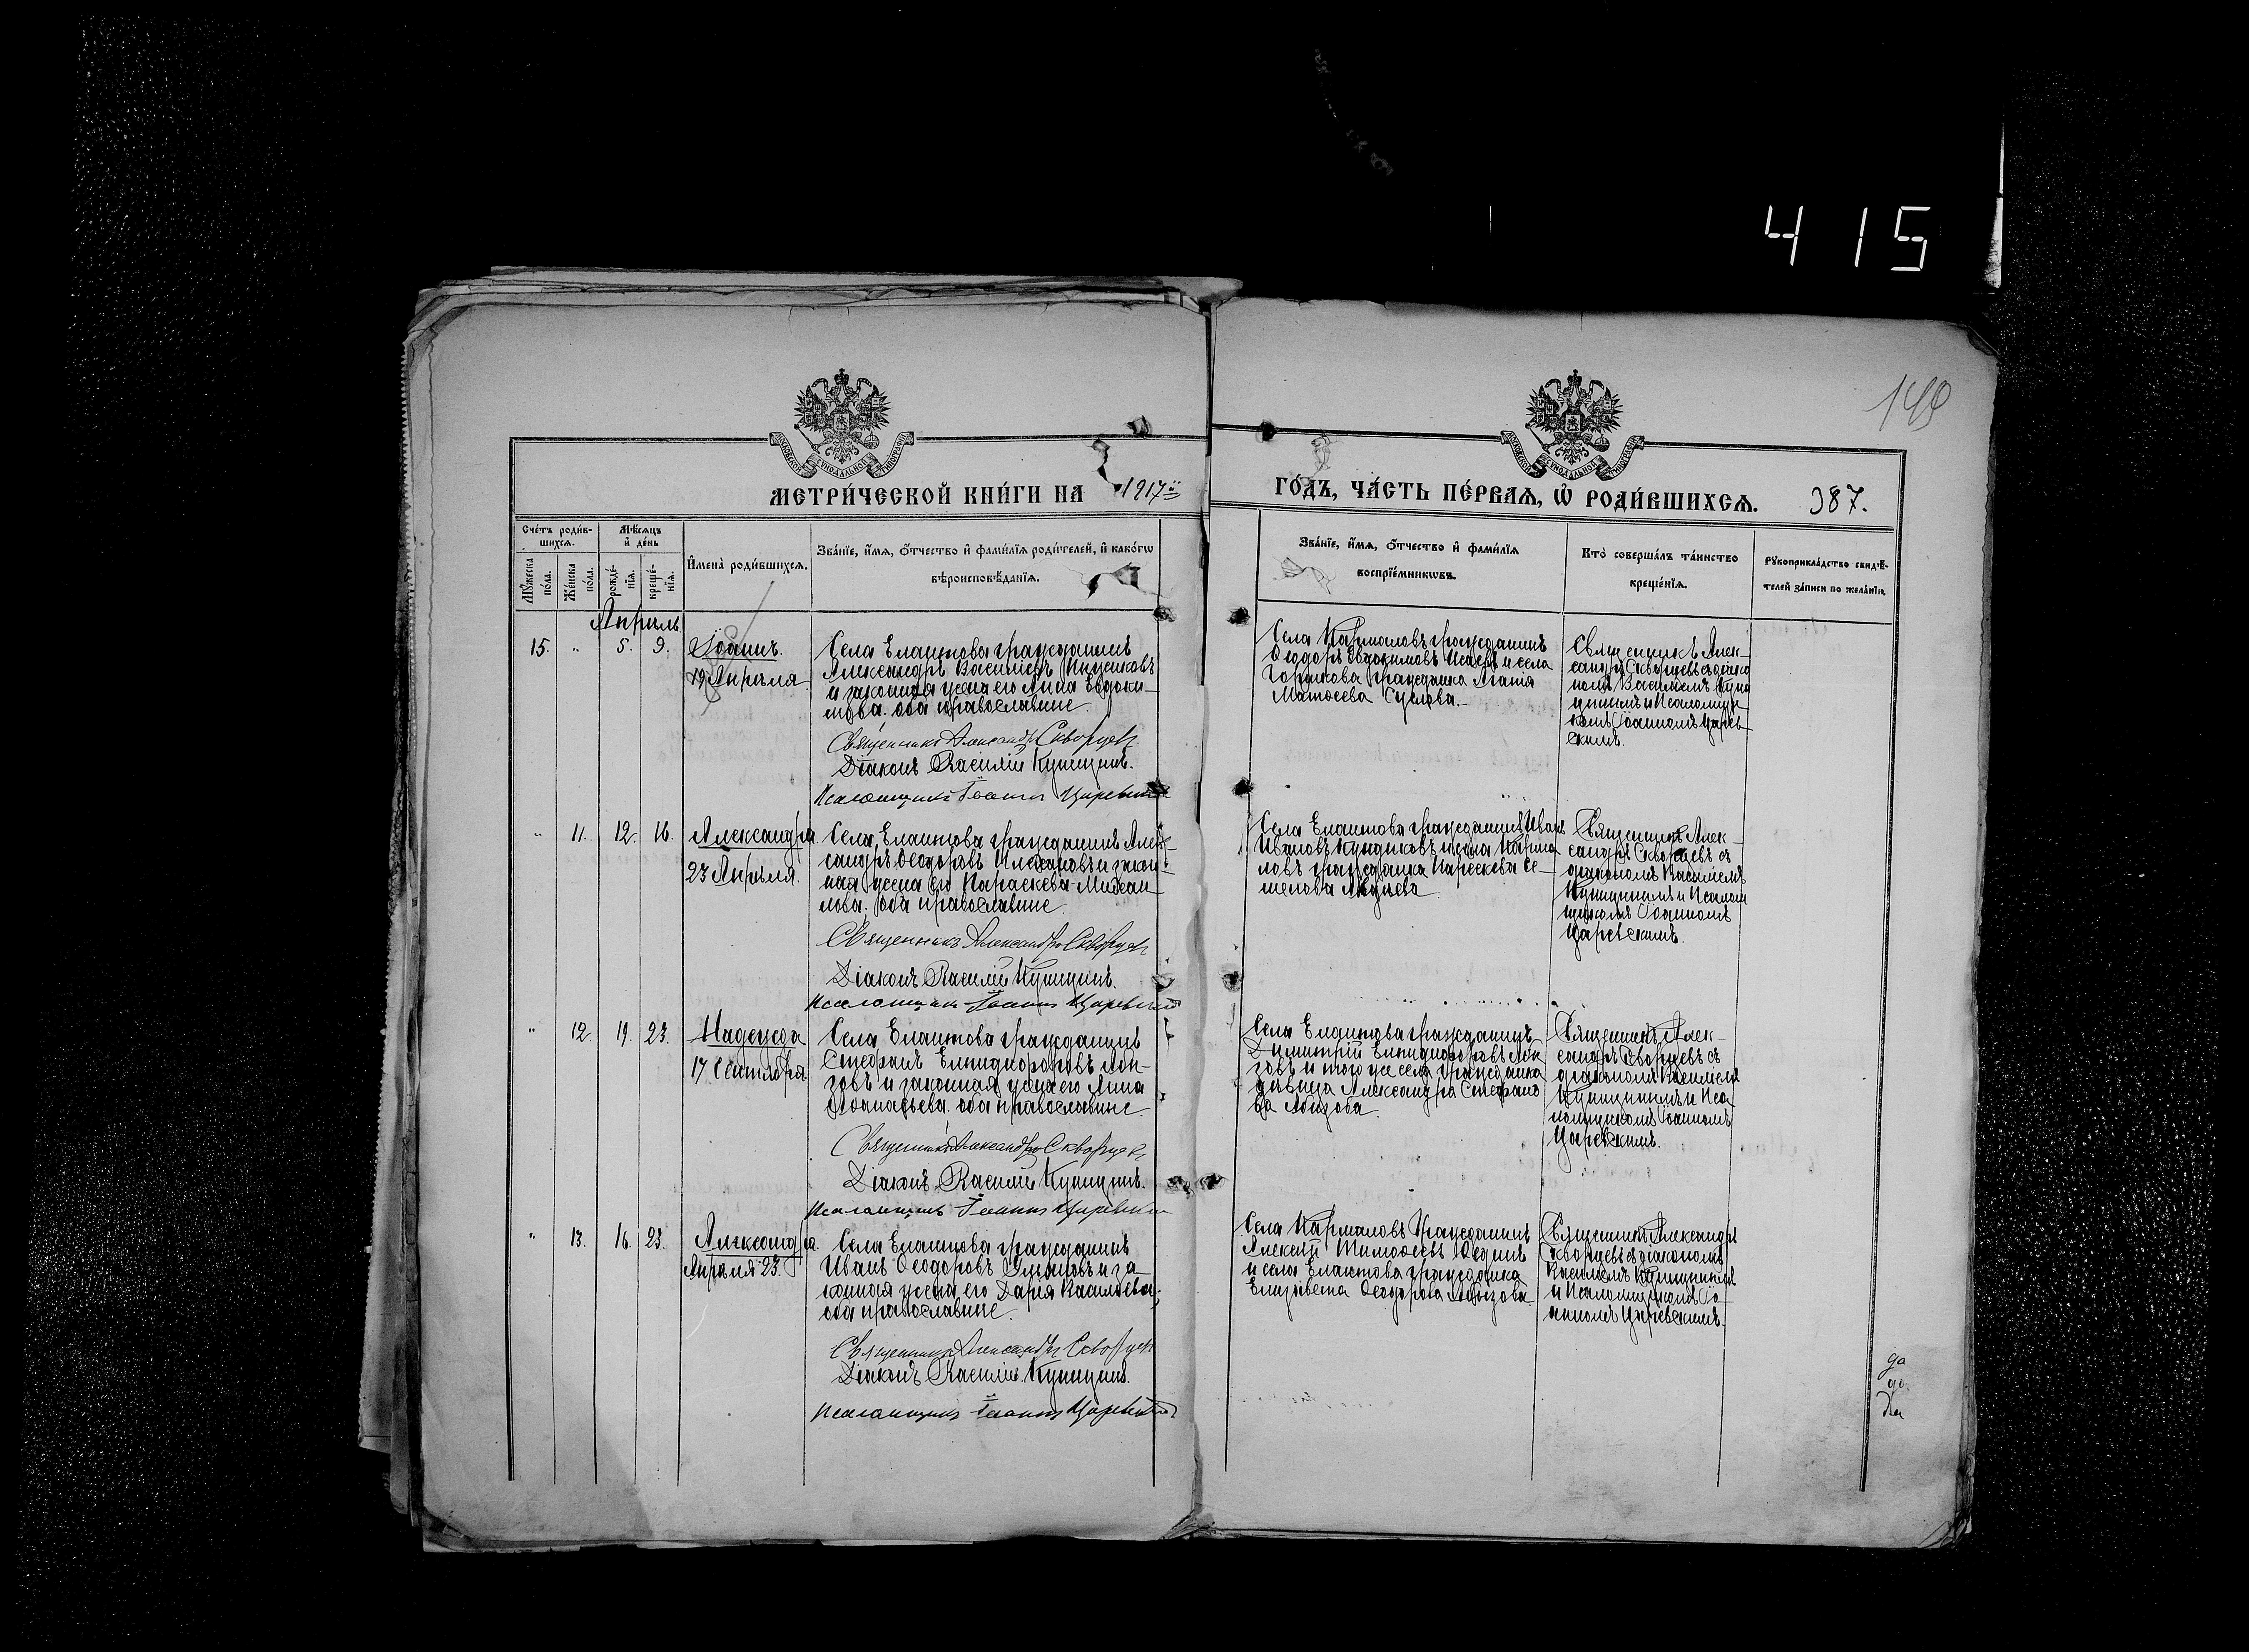 415
149
МЕТРИ́ЧЕСКОЙ КНИ́ГИ НА 1917й
ГО́ДЪ, ЧА́СТЬ ПЕ́РВАЯ, Ѡ҆ РОДИ́ВШИХСЯ. 387.
Сче́тъ роди́вшихся.
Мѣ́сяцъ и҆ де́нь
Му́жеска по́ла.
Же́нска по́ла.
рожде́нїѧ.
креще́нїѧ.
И҆мена̀ роди́вшихся.
Зва́нїе, и҆́мѧ, ѻ҆́тчество и҆ фами́лїѧ роди́телей, и҆ како́гѡ
вѣроисповѣ́данїѧ.
Зва́нїе, и҆́мѧ, ѻ҆́тчество и҆ фами́лїѧ
воспрїе́мникѡвъ.
Кто̀ соверша́лъ та́инство
креще́нїѧ.
Рꙋкоприкла́дство свидѣ́-
телей за́писи по жела́нїю.
Апрѣль
15. " 5. 9.
Іоаннъ.
19 Апрѣля
Села Елаитова гражданинъ
Александръ Васильевъ
и законная жена его Анна Евдоки-
мова. оба православные
Священникъ Александръ Скворцовъ
Діаконъ Василій Куницынъ.
Псаломщикъ Іоаннъ Царевскій
Села Кармаловъ гражданинъ
Ѳеодоръ Евдокимовъ Исаевъ и села
гражданка Агаѳія
Матѳеева Суслова.
Священникъ Алек-
сандръ Скворцовъ съ діако
номъ Василіемъ Куни
цынымъ и Псаломщи-
комъ Іоанномъ Царев-
скимъ.
" 11. 12. 16.
Александра.
23 Апрѣля.
Села Елаитова гражданинъ Алек-
сандръ Ѳеодоровъ и закон-
ная жена его Параскева Михаи-
лова. оба православные
Священникъ Александръ Скворцовъ
Діаконъ Василій Куницынъ.
Псаломщикъ Іоаннъ Царевскій
Села Елаитова гражданинъ Иванъ
Ивановъ и села Карма
ловъ гражданка Параскева
Священникъ Алек-
сандръ Скворцовъ съ
діакономъ Василіемъ
Куницынымъ и Псалом
щикомъ Іоанномъ
Царевскимъ.
" 12. 19. 23.
Надежда
17 Сентября
Села Елаитова гражданинъ
Стефанъ Елпидифоровъ
и законная жена его Анна
Аѳанасьева. оба православные
Священникъ Александръ Скворцовъ
Діаконъ Василій Куницынъ.
Псаломщикъ Іоаннъ Царевскій
Села Елаитова гражданинъ
Димитрій Елпидифоровъ
и того же села гражданка
дѣвица Александра Стефано
ва
Священникъ Алек-
сандръ Скворцовъ съ
діакономъ Василіемъ
Куницынымъ и Пса-
ломщикомъ Іоанномъ
Царевскимъ.
" 13. 16. 23.
Александра.
Апрѣля 23.
Села Елаитова гражданинъ
Иванъ Ѳеодоровъ и за-
конная жена его Дарія Васильева;
оба православные.
Священникъ Александръ Скворцовъ
Діаконъ Василій Куницынъ.
Псаломщикъ Іоаннъ Царевскій
Села Кармаловъ Гражданинъ
Алексѣй Тимоѳеевъ
и села Елаитова гражданка
Елизавета Ѳеодорова
Священникъ Александръ
Скворцовъ съ діакономъ
Василіемъ Куницынымъ
и Псаломщикомъ Іо-
анномъ Царевскимъ.